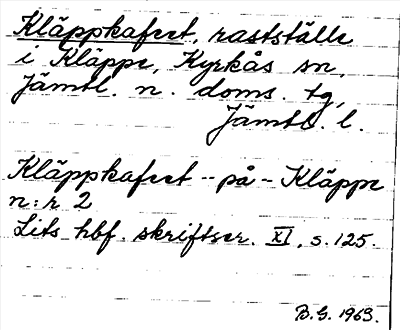 Kläppkafeet, rastställe
i Kläppe, Kyrkås sn,
Jämtl. n. doms. tg,
Jämtl. l.
Kläppkafeet -- på - Kläppe
n:r 2
Lits hbf. skriftser. XI, s. 125.
B.G. 1963.